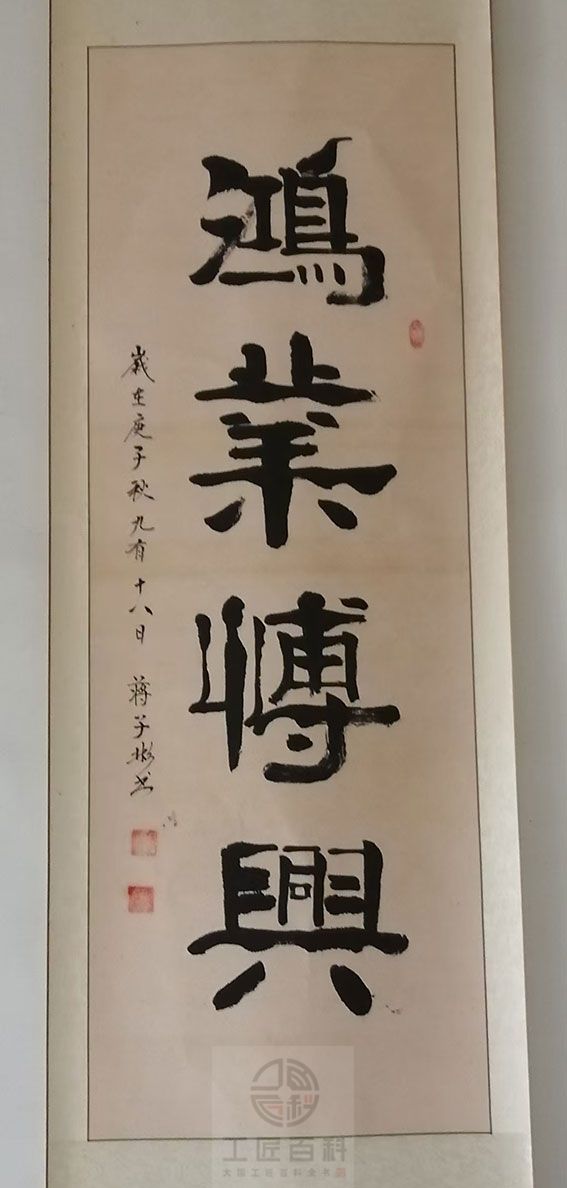 鴻業愽興
歲在庚子秋九有十八日 蔣子彬书
工匠百科
大国工匠百科全书